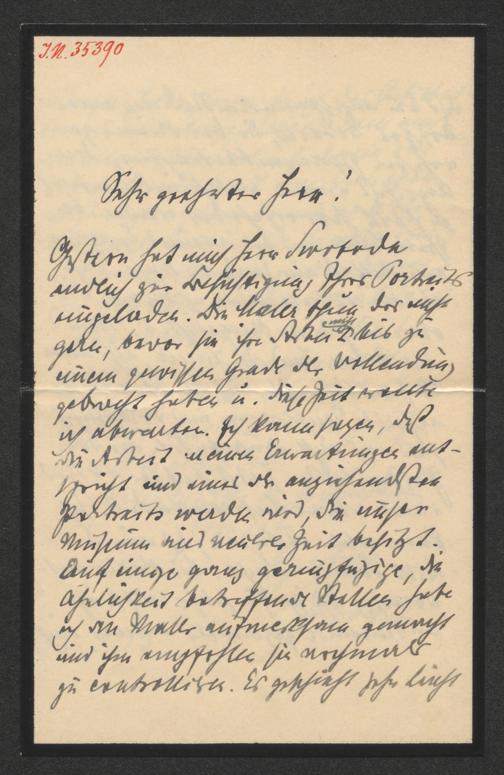 J.N. 35390
Sehr geehrter Herr!
Gestern hat mich Herr Swoboda
endlich zur Besichtigung Ihres Portraits
eingeladen. Die Maler thun das nicht
gern, bevor sie ihre Arbeit nicht bis zu
einem gewissen Grade der Vollendung
gebracht haben u. diese Zeit wollte
ich abwarten. Ich kann sagen, daß
die Arbeit meinen Erwartungen ent-
spricht und eines der anziehendsten
Portraits werden wird, die unser
Museum aus neuerer Zeit besitzt.
Auf einige ganz geringfügige, die
Ähnlichkeit betreffende Stellen habe
ich den Maler aufmerksam gemacht
und ihm empfohlen sie nochmals
zu controlliren. Es geschieht sehr leicht